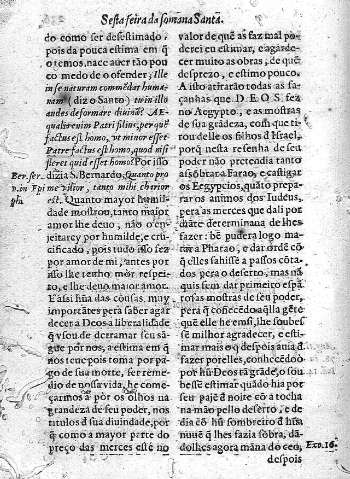 Sesta feira da somana Santa.
do como ser desestimado,
pois da pouca estima em q̃
o temos, nace auer tão pou
co medo de o ofender, Ille
in se naturam commēdat huma
nam (diz o Santo) tu in illo
audes deformare diuinā? AE-
qualis enim Patri filius, per quē
factus est homo, vt minor esset
Patre factus est homo, quod nisi
fieret quid esset homo? Por isso
dizia S. Bernardo, Quanto pro
me vilior, tanto mihi charior
est. Quanto mayor humil-
dade mostrou, tanto maior
amor lhe deuo, não o en-
jeitarey por humilde, e cru-
cificado, pois tudo isso fez
por amor de mi, antes por
isso lhe tenho mòr respei-
to, e lhe deuo maior amor.
E assi hũa das cousas, muy
importãtes pera saber agar
decer a Deos a liberalidade
q̃ vsou de derramar seu sã-
gue por nos, a estima em q̃
nos teue pois toma por pa-
go de sua morte, ser reme-
dio de nossa vida, he come-
çarmos a pòr os olhos na
grandeza de seu poder, nos
titulos da sua diuindade, por
q̃ como a mayor parte do
preço das merces està no
Ber. ser.
in Epi
ph.
valor de quē as faz mal po-
derei eu estimar, e agarde-
cer muito as obras, de quē
desprezo, e estimo pouco.
A isso atirarão todas as fa-
çanhas que DEOS fez
no Aegypto, e as mostras
de sua grãdeza, cõs que ti-
rou delle os filhos d'Israel,
porq̃ nesta resenha de seu
poder não pretendia tanto
assõbrar a Farao, e castigar
os Aegypcios, quãto prepa-
rar os animos dos Iudeus,
pera as merces que dali por
diãte determinaua de lhes
fazer: bē pudera logo ma-
tar a Pharao, e dar ordē cõ
q̃ elles sahissē a passos cõta-
dos pera o deserto, mas nã
quis sem dar primeiro espã
tosas mostras de seu poder,
pera q̃ conhecēdo aq̃lla gēte
quē elle he em si, lhe soubes
se milhor agradecer, e esti-
mar mais o q̃ despois auia d̃
fazer por elles, conhecēdo
por hũ Deos tã grãde, o sou
bessē estimar quãdo hia por
seu paje d̃ noite cõ a tocha
na mão pello deserto, e de
dia cõ hũ sombreiro d̃ hũa
nuuē q̃ lhes fazia sõbra, dã-
dolhes agora màna do ceo,
Exo. 16.
despois